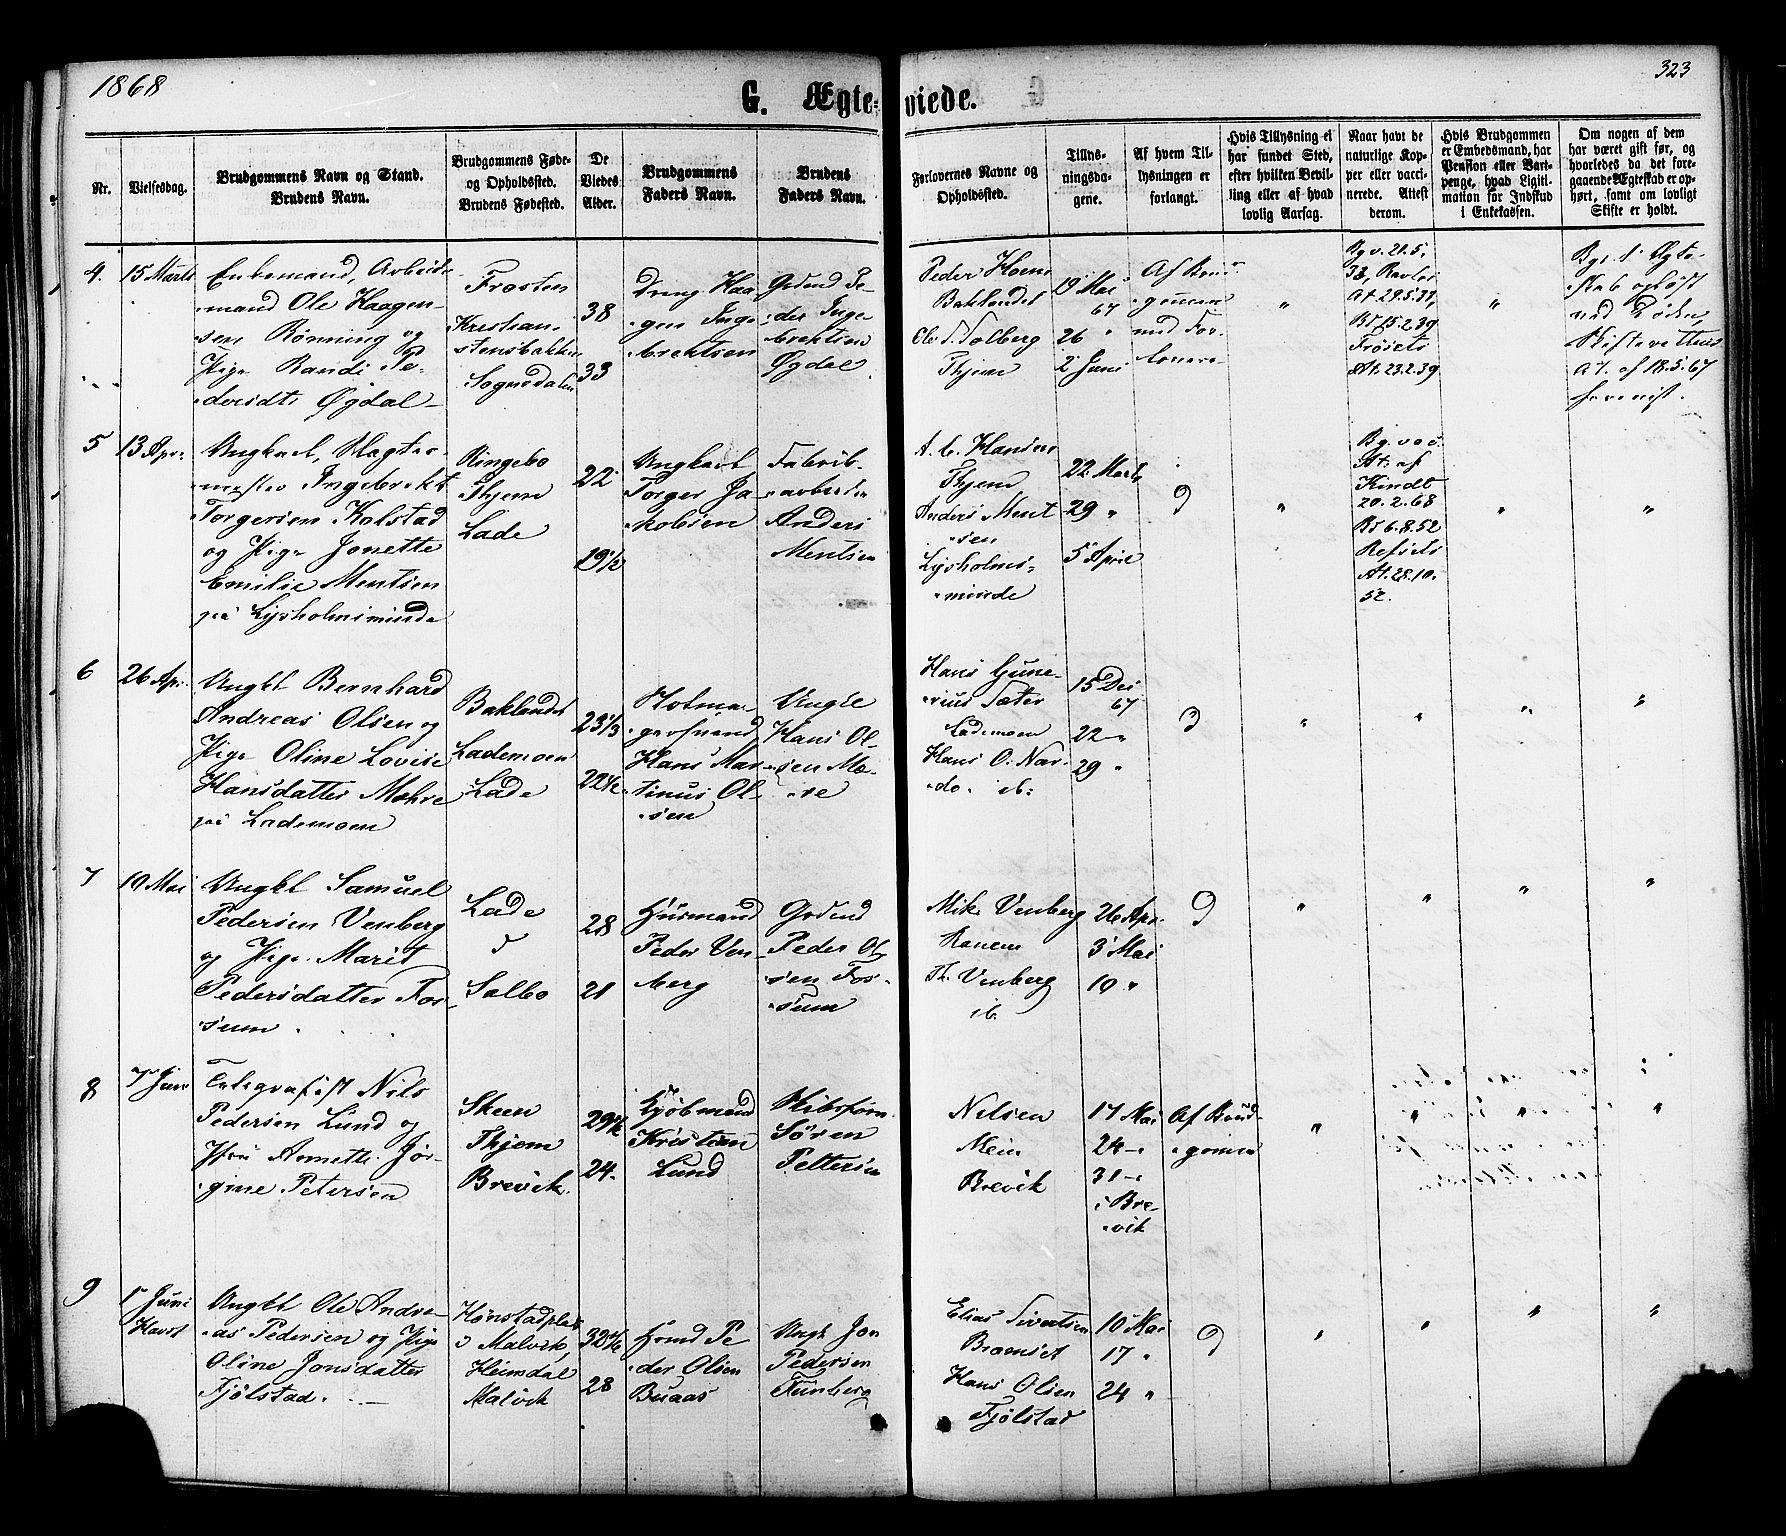 1868
323
G. Ægte-viede.
Nr.
Vielsesdag.
Brudgommens Navn og Stand.
Brudens Navn.
Brudgommens Føde-
og Opholdssted.
Brudens Fødested.
De
Viedes
Alder.
Brudgommens
Faders Navn.
Brudens
Faders Navn.
Forlovernes Navne og
Opholdssted.
Tillys-
ningsda-
gene.
Af hvem Til-
lysningen er
forlangt.
Hvis Tillysning ei
har fundet Sted,
efter hvilken Bevil-
ling eller af hvad
lovlig Aarsag.
Naar havt de
naturlige Kop-
per eller vacci-
nerede. Attest
derom.
Hvis Brudgommen
er Embedsmand, har
Pension eller Vart-
penge, hvad Ligiti-
mation for Indskud
i Enkekassen.
Om nogen af dem
har været gift før, og
hvorledes da det fore-
gaaende Ægteskab er op-
hørt, samt om lovligt
Skifte er holdt.
4.
15 Marts
Enkemand, Arbeids-
mand Ole Haagen-
sen Rønning og
Pige Randi Pe-
dersdtr Øgdal
Frosten
Kristian-
stensbakken
Sognedalen
38
33
Haa-
gen Inge-
brektsen
Pe-
der Inge-
brektsen
Øgdal
Peder Hoem
Baklandet
Ole S. Solberg
Thjem
19 Mai
67
26 "
2 Juni
Af Brud-
gommen
med For-
lovere
"
Bg v. 21.5.
33,
At. 29.5.39,
Bd 15.2.39
At. 23.2.39
"
Bgs 1' Ægte-
skab opløst
ved Døden,
Skifterettens
At. af 18.5.67
forevist.
5
13 Apr.
Ungkarl, Slagter-
mester Ingebrekt
Torgersen Kolstad
og Pige Jonette
Emilie Mentsen
på Lysholmsminde
Ringebo
Thjem
Lade
22
19½
Ungkarl
Torger Ja-
kobsen
Fabrik-
arbeider
Anders
Mentsen
A. C. Hansen
Thjem
Anders Ment-
sen
Lysholms-
minde
22 Marts
29 "
5 April
d
"
Bg. vac.
At. af
Kindt
20.2.68
Bd 6.8.52
At. 28.10.
52.
"
"
6
26 Apr.
Ungkl Bernhard
Andreas Olsen og
Pige Oline Lovise
Hansdatter Mæhre
på Lademoen
Baklandet
Lademoen
Lade
23⅓
22½
Hans Mar-
tinus Ol-
sen
Hans Ol-
sen Mæ-
re
Hans Gune-
rius Sæter
Lademoen
Hans O. Nar-
do. ib.
15 Dei
67
22 "
29 "
d
"
"
"
"
7
10 Mai
Ungkl Samuel
Pedersen Venberg
og Pige Marit
Pedersdatter Fos-
sum.
Lade
d
Selbo
28
21
Husmand
Peder Ven-
berg
Grdmd
Peder Ol-
sen Fos-
sum
Mik. Venberg
Ranem
Th. Venberg
ib.
26 Apr.
3 Mai
10 "
d
"
"
"
"
8
7 Juni
Telegrafist Nils
Pedersen Lund og
Annette Jør-
gine Petersen
Skeen
Thjem
Brevik.
29½
24.
Kjøbmand
Kristian
Lund
Skibsfører
Søren
Pettersen
Nelsen
Mein
Brevik
17 Mai
24 "
31 "
i Bre-
vik
Af Brud-
gommen
"
"
"
"
9
1' Juni
Ungkl Ole Andre-
as Pedersen og Pige
Oline Jonsdatter
Fjølstad.
Hønstadplads
i Malvik,
Heimdal
Malvik
28
Pe-
der Olsen
Buaas
Ungk. Jon
Pedersen
Tunberg
Elias Sivertsen
Bromset
Hans Olsen
Fjølstad
10 Mai
17 "
24 "
d
"
"
"
"